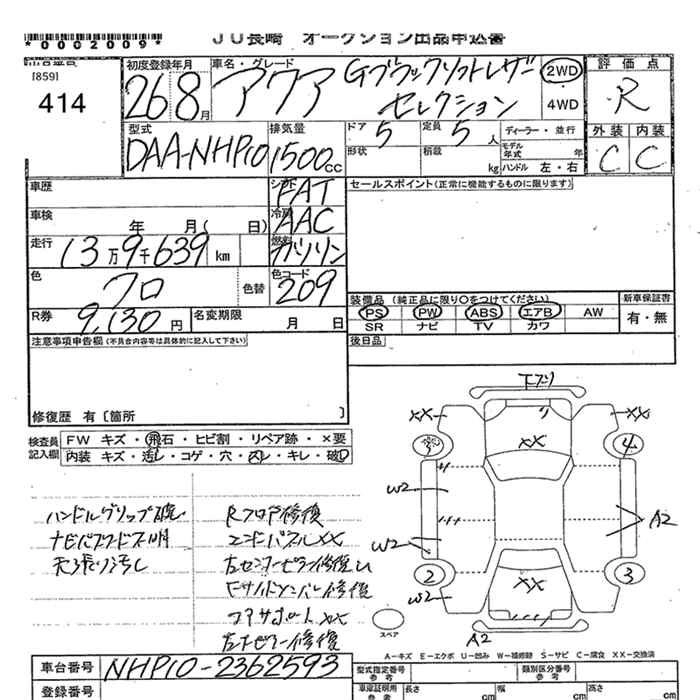 *0002009*
JU長崎 オークション出品申込書
[859]
414
初度登録年月
26 8月
車名・グレード
アクア Gブラックソフトレザー
セレクション
2WD
4WD
評価点
R
外装 内装
C C
型式
DAA-NHP10
排気量
1500cc
ドア
5
定員
5人
形状
積載
kg
ディーラー・並行
モデル年式 年
ハンドル 左・右
車歴
シフト
FAT
セールスポイント(正常に機能するものに限ります)
車検
年 月( 日)
冷房
AAC
走行
13万9千639km
燃料
ガソリン
色
クロ
色替
色コード
209
R券
9,130円
名変期限
月 日
装備品 (純正品に限り○をつけてください)
PS PW ABS エアB AW
SR ナビ TV カワ
新車保証書
有・無
注意事項申告欄(不具合内容等は具体的に記入して下さい)
後日品
修復歴 有〔箇所 〕
検査員記入欄
FW キズ・飛石・ヒビ割・リペア跡・×要
内装 キズ・汚レ・コゲ・穴・スレ・キレ・破レ
ハンドルグリップ破レ
天張り汚レ
Rフロア修復
エンドパネルXX
コアサポートXX
XX XX
XX
4
W2
W2
A2
2 3
W2
XX
スペア
A2
A-キズ E-エクボ U-凹み W-補修跡 S-サビ C-腐食 XX-交換済
車台番号
NHP10-2362593
登録番号
型式指定番号
類別区分番号
長さ cm
幅 cm
高さ cm